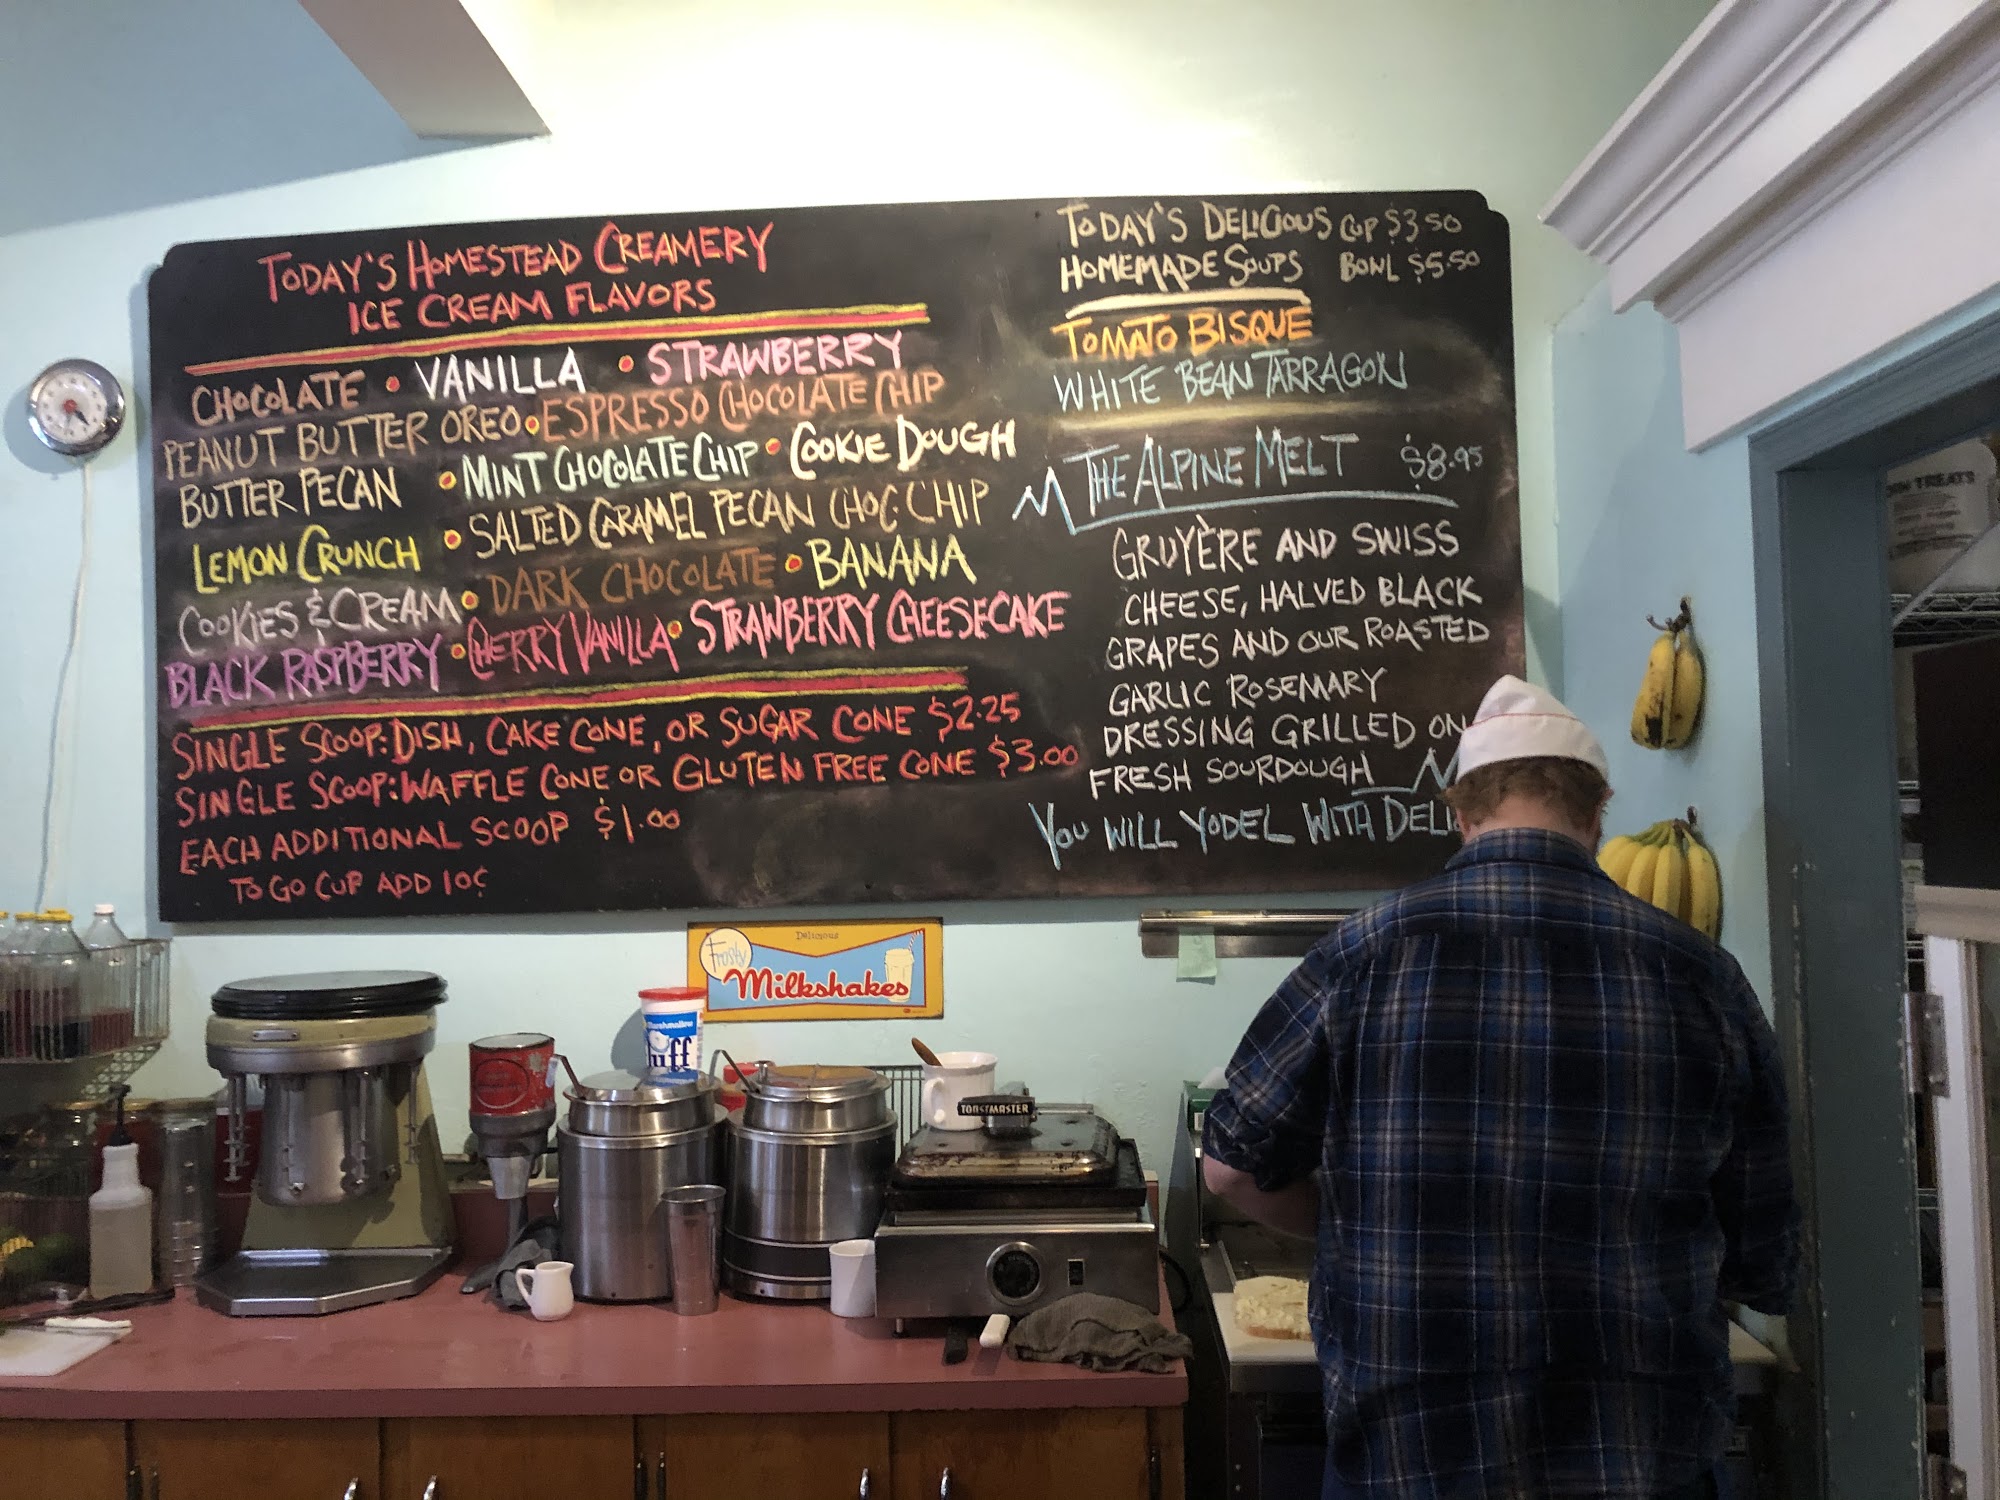 TODAY'S HOMESTEAD CREAMERY
ICE CREAM FLAVORS
CHOCOLATE • VANILLA • STRAWBERRY
PEANUT BUTTER OREO • ESPRESSO CHOCOLATE CHIP
BUTTER PECAN • MINT CHOCOLATE CHIP • COOKIE DOUGH
LEMON CRUNCH • SALTED CARAMEL PECAN CHOC. CHIP
COOKIES & CREAM • DARK CHOCOLATE • BANANA
BLACK RASPBERRY • CHERRY VANILLA • STRAWBERRY CHEESECAKE
SINGLE SCOOP: DISH, CAKE CONE, OR SUGAR CONE $2.25
SINGLE SCOOP: WAFFLE CONE OR GLUTEN FREE CONE $3.00
EACH ADDITIONAL SCOOP $1.00
TO GO CUP ADD 10¢
TODAY'S DELICIOUS CUP $3.50
HOMEMADE SOUPS BOWL $5.50
TOMATO BISQUE
WHITE BEAN TARRAGON
THE ALPINE MELT $8.95
GRUYÈRE AND SWISS
CHEESE, HALVED BLACK
GRAPES AND OUR ROASTED
GARLIC ROSEMARY
DRESSING GRILLED ON
FRESH SOURDOUGH
YOU WILL YODEL WITH DELI
Delicious
Frosty
Milkshakes
Marshmallow
uff
TOASTMASTER
TREATS